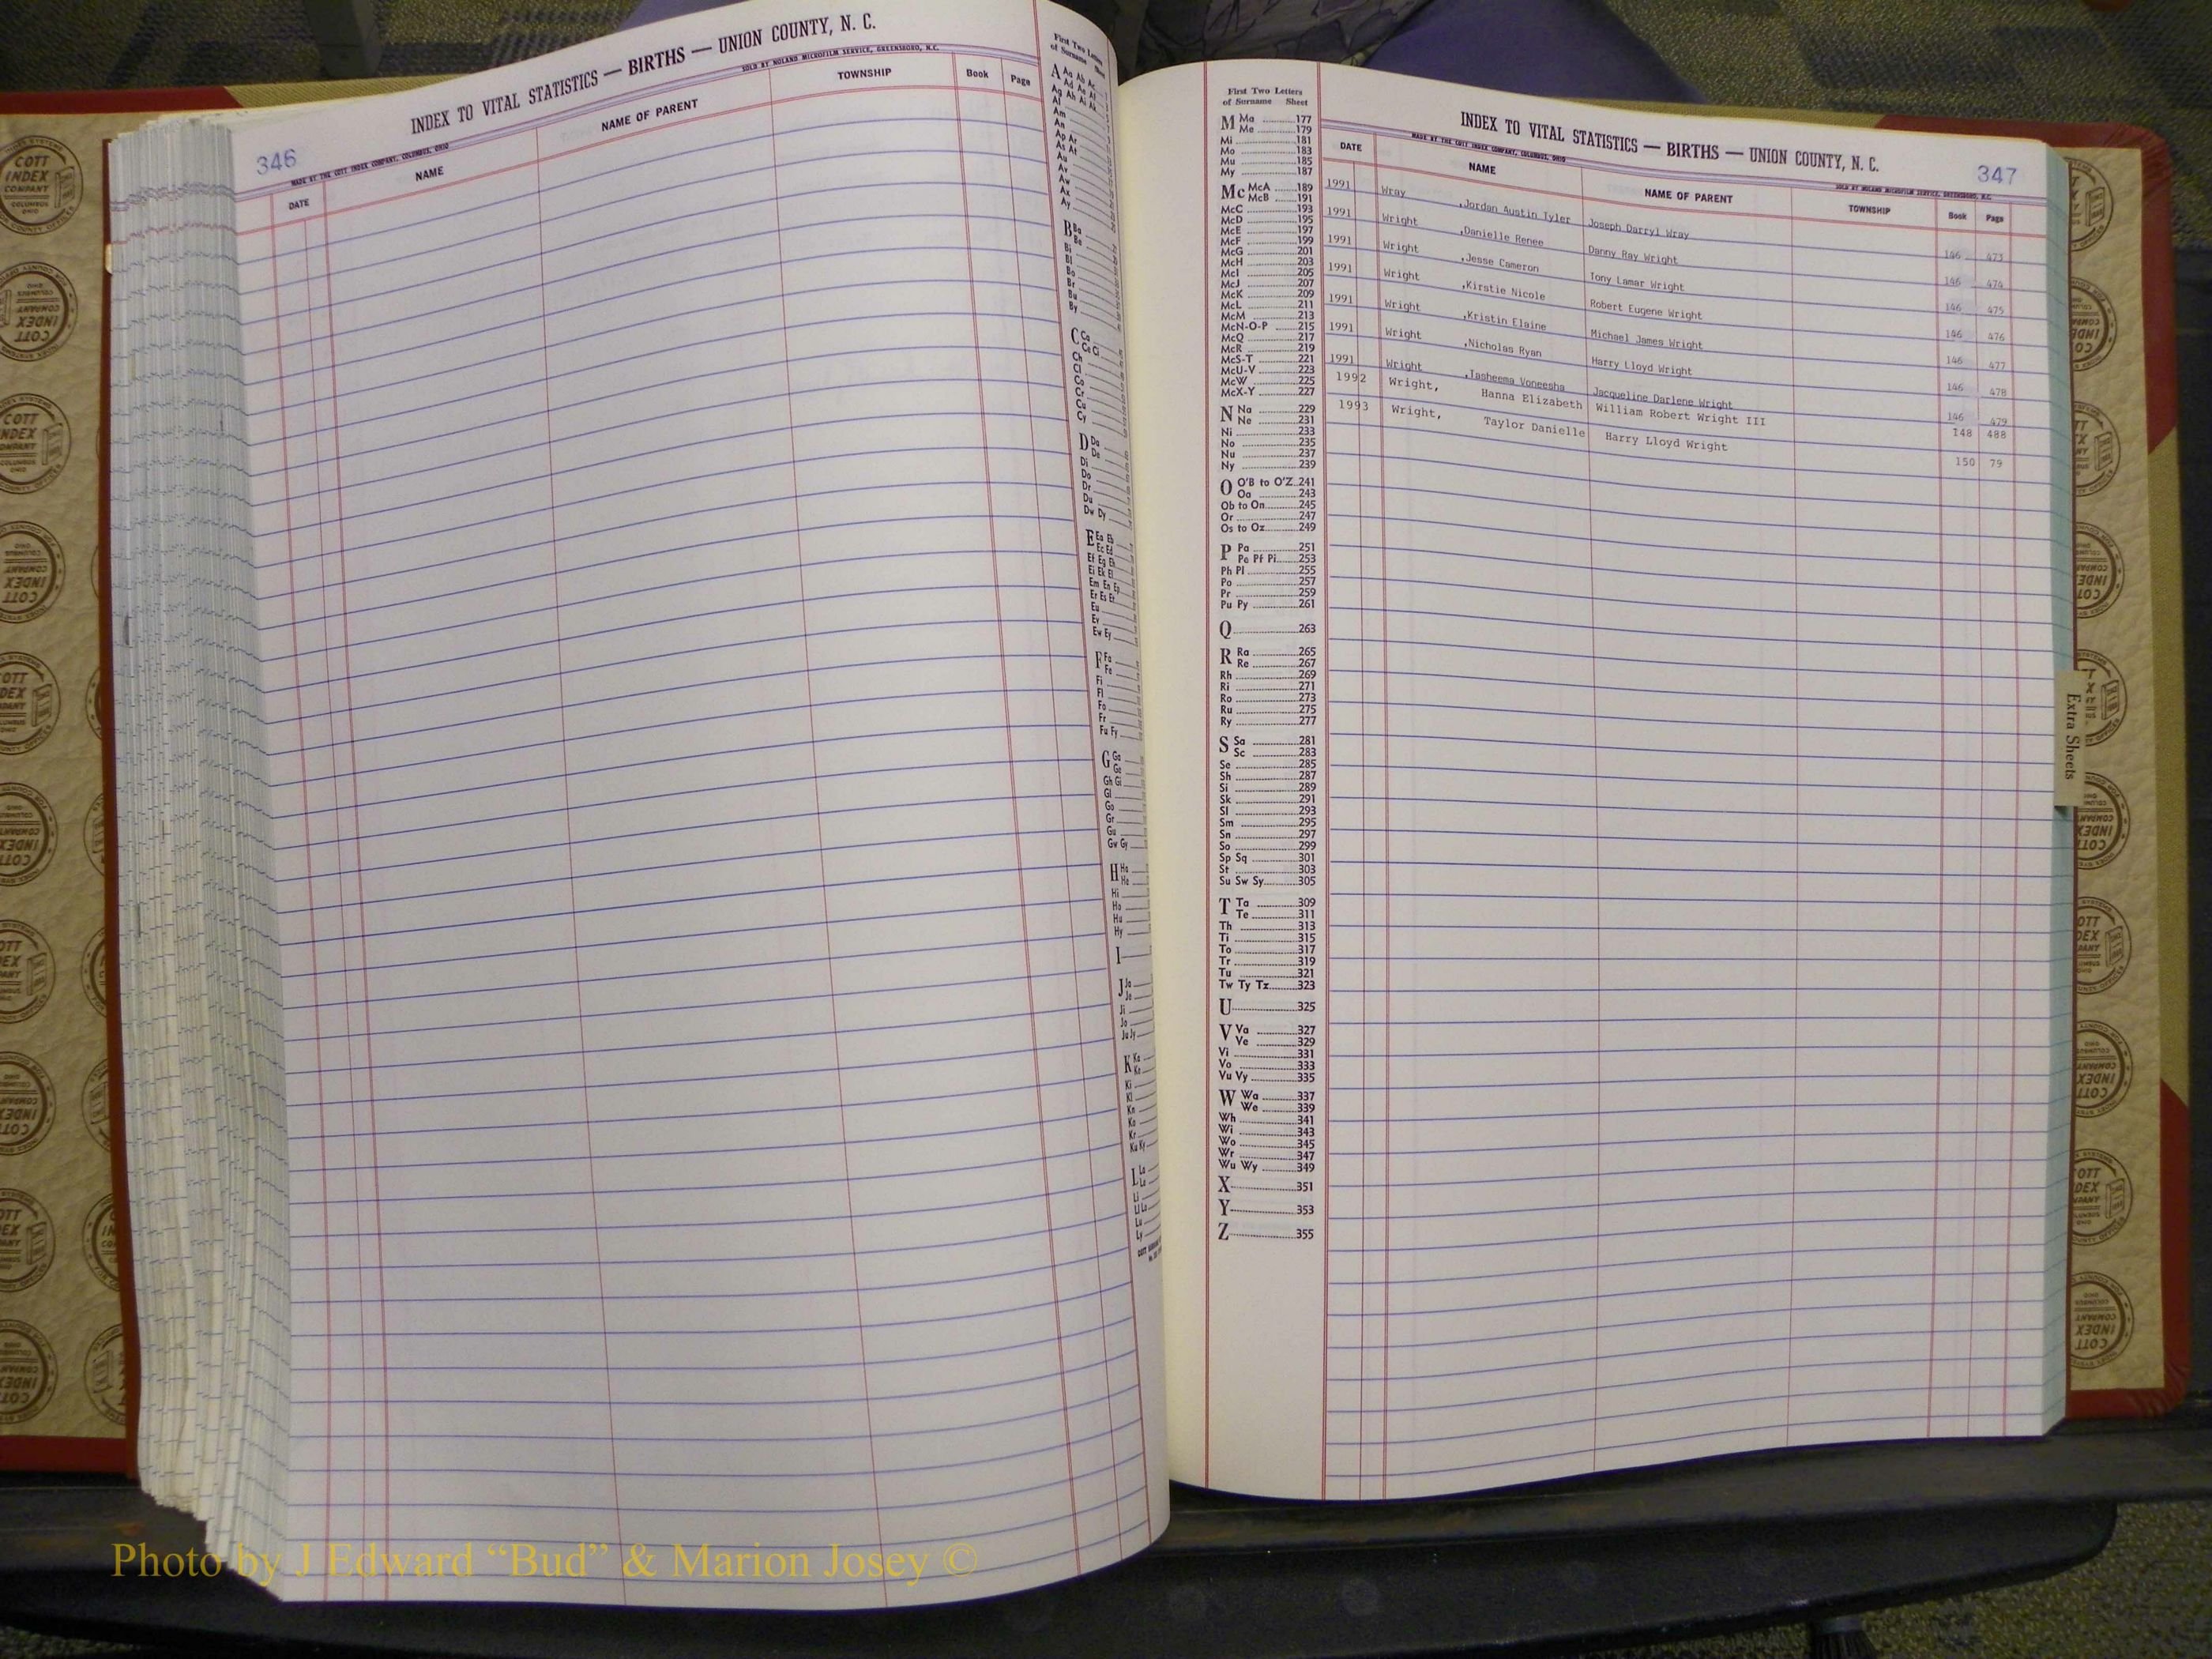 INDEX TO VITAL STATISTICS — BIRTHS — UNION COUNTY, N. C.
346
MADE BY THE COTT INDEX COMPANY, COLUMBUS, OHIO
SOLD BY NOLAND MICROFILM SERVICE, GREENSBORO, N.C.
DATE NAME NAME OF PARENT TOWNSHIP Book Page
First Two Letters
of Surname Sheet
A Aa Ab Ac
Ad Ae Af
Ag Ah Ai Ak
Al
Am
An
Ap Ar
As At
Au
Av
Aw
Ax
Ay
B Ba
Be
Bi
Bl
Bo
Br
Bu
By
C Ca
Ce Ci
Ch
Cl
Co
Cr
Cu
Cy
D Da
De
Di
Do
Dr
Du
Dw Dy
E Ea Eb
Ec Ed
Ef Eg Eh
Ei Ek El
Em En Ep
Er Es Et
Eu
Ev
Ew Ey
F Fa
Fe
Fi
Fl
Fo
Fr
Fu Fy
G Ga
Ge
Gh Gi
Gl
Go
Gr
Gu
Gw Gy
H Ha
He
Hi
Ho
Hu
Hy
I
J Ja
Je
Ji
Jo
Ju Jy
K Ka
Ke
Ki
Kl
Kn
Ko
Kr
Ku Ky
L La
Le
Li
Ll Lo
Lu
Ly
First Two Letters
of Surname Sheet
M Ma 177
Me 179
Mi 181
Mo 183
Mu 185
My 187
Mc McA 189
McB 191
McC 193
McD 195
McE 197
McF 199
McG 201
McH 203
McI 205
McJ 207
McK 209
McL 211
McM 213
McN-O-P 215
McQ 217
McR 219
McS-T 221
McU-V 223
McW 225
McX-Y 227
N Na 229
Ne 231
Ni 233
No 235
Nu 237
Ny 239
O O'B to O'Z 241
Oa 243
Ob to On 245
Or 247
Os to Oz 249
P Pa 251
Pe Pf Pi 253
Ph Pl 255
Po 257
Pr 259
Pu Py 261
Q 263
R Ra 265
Re 267
Rh 269
Ri 271
Ro 273
Ru 275
Ry 277
S Sa 281
Sc 283
Se 285
Sh 287
Si 289
Sk 291
Sl 293
Sm 295
Sn 297
So 299
Sp Sq 301
St 303
Su Sw Sy 305
T Ta 309
Te 311
Th 313
Ti 315
To 317
Tr 319
Tu 321
Tw Ty Tz 323
U 325
V Va 327
Ve 329
Vi 331
Vo 333
Vu Vy 335
W Wa 337
We 339
Wh 341
Wi 343
Wo 345
Wr 347
Wu Wy 349
X 351
Y 353
Z 355
INDEX TO VITAL STATISTICS — BIRTHS — UNION COUNTY, N. C.
347
MADE BY THE COTT INDEX COMPANY, COLUMBUS, OHIO
SOLD BY NOLAND MICROFILM SERVICE, GREENSBORO, N.C.
DATE NAME NAME OF PARENT TOWNSHIP Book Page
1991 Wray ,Jordan Austin Tyler Joseph Darryl Wray 146 473
1991 Wright ,Danielle Renee Danny Ray Wright 146 474
1991 Wright ,Jesse Cameron Tony Lamar Wright 146 475
1991 Wright ,Kirstie Nicole Robert Eugene Wright 146 476
1991 Wright ,Kristin Elaine Michael James Wright 146 477
1991 Wright ,Nicholas Ryan Harry Lloyd Wright 146 478
1991 Wright ,Tasheema Voneesha Jacqueline Darlene Wright 146 479
1992 Wright, Hanna Elizabeth William Robert Wright III 148 488
1993 Wright, Taylor Danielle Harry Lloyd Wright 150 79
Extra Sheets
Photo by J Edward “Bud” & Marion Josey ©